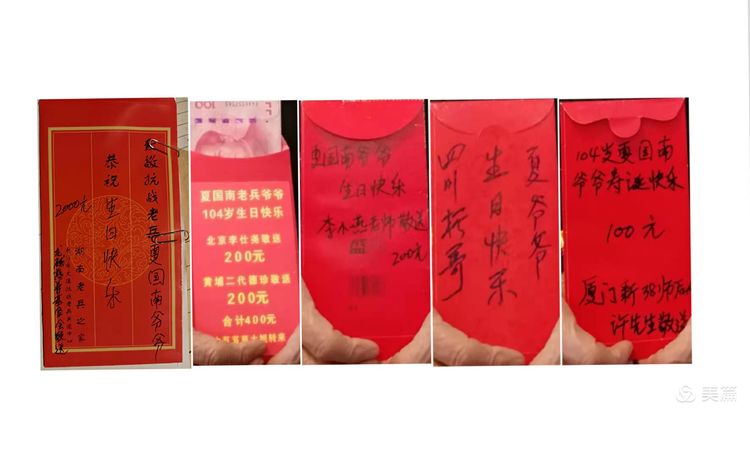 致敬抗战老兵夏国南爷爷
恭祝生日快乐
2000元
湖南老兵之家
100
夏国南老兵爷爷
104岁生日快乐
北京李仕尧敬送
200元
黄埔二代德珍敬送
200元
合计400元
夏国南爷爷
生日快乐
李小燕老师敬送
200元
夏爷爷
生日快乐
四川托哥
104岁夏国南
爷爷寿诞快乐
100元
厦门新38师后人
许先生敬送
美篇